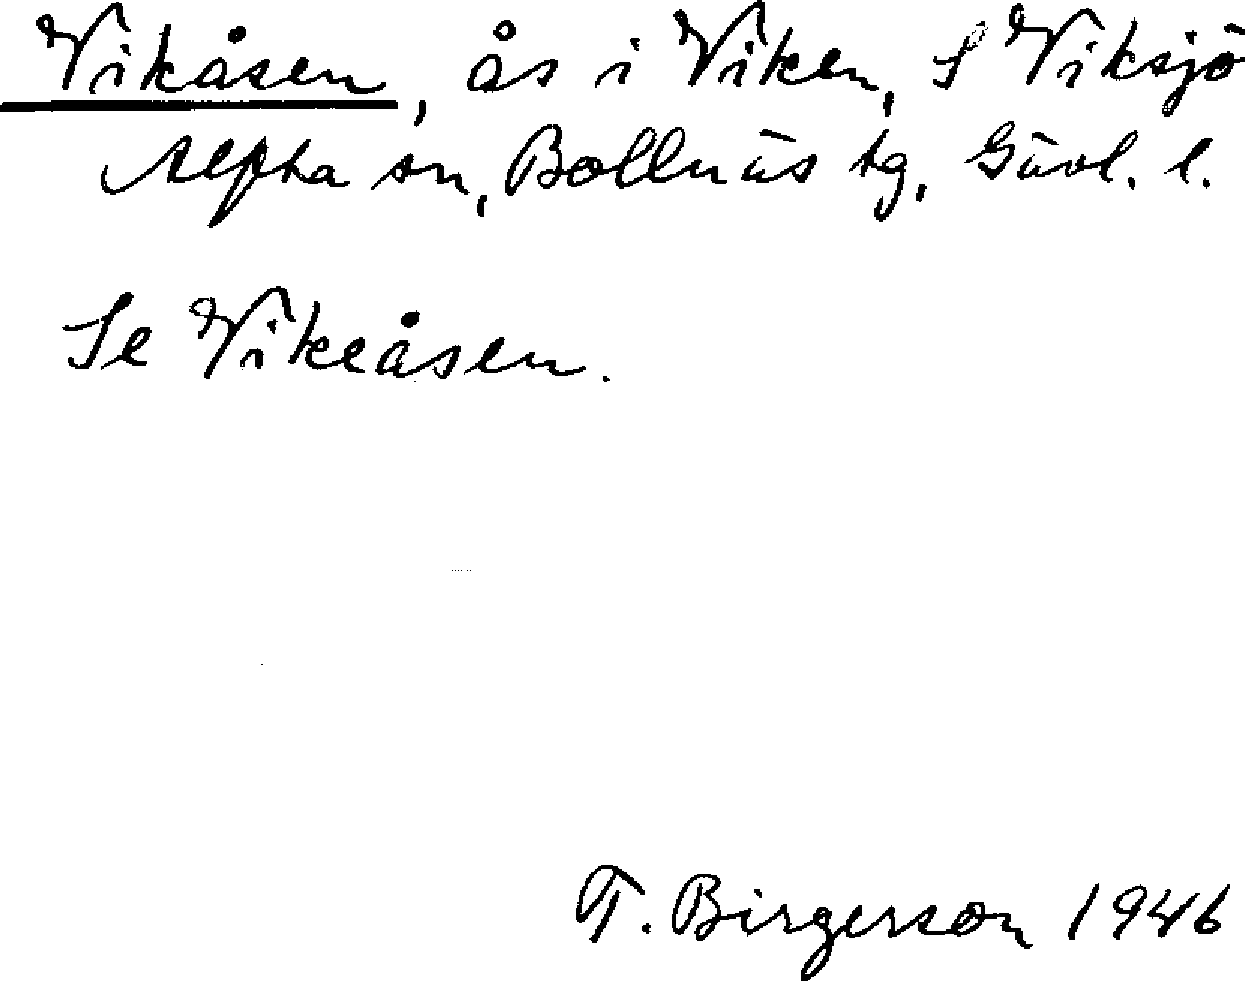 Vikåsen, ås i Viken, S Viksjö
Alfta sn, Bollnäs tg, Gävl. l.
Se Vikeåsen.
T. Birgerson 1946